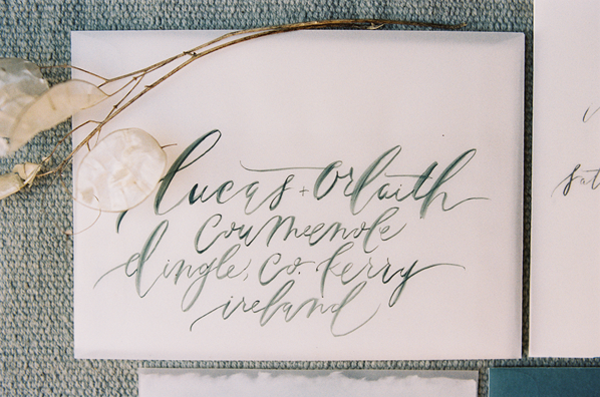 lucas + Orlaith
Coumeenole
dingle, Co. kerry
ireland